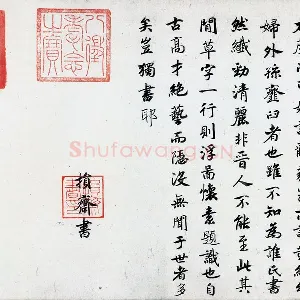 婦外孫虀臼者也雖不知為誰氏書
然纖勁清麗非晉人不能至此其
間草字一行則浮啚懷素題識也自
古高才絕藝而隱沒無聞于世者多
矣豈獨書耶
損齋書
八徵
耄念
之寶
Shufawang.CN